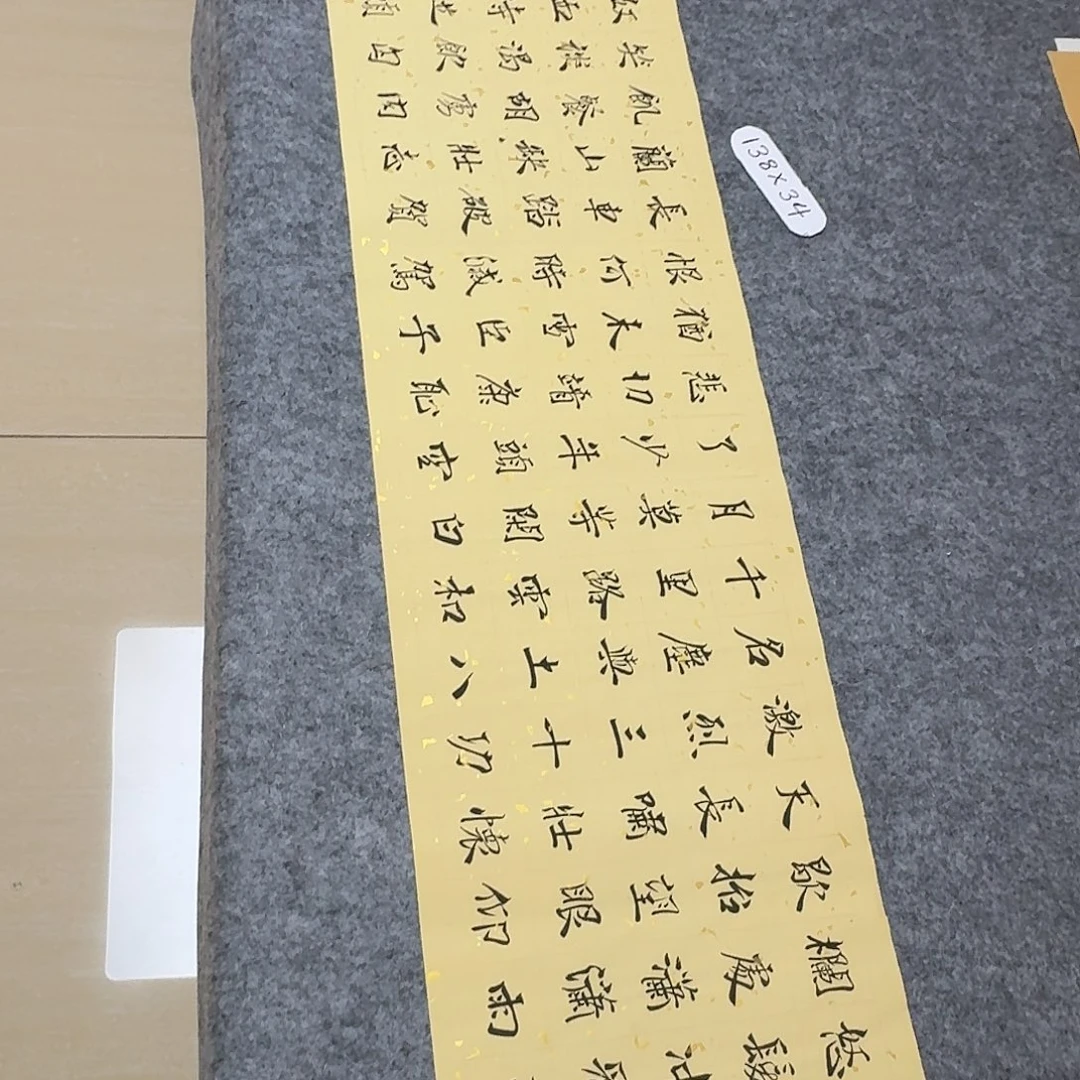 怒髮沖
欄處瀟瀟雨
歇抬望眼仰
天長嘯壯懷
激烈三十功
名塵與土八
千里路雲和
月莫等閒白
了少年頭空
悲切靖康恥
猶未雪臣子
恨何時滅駕
長車踏破賀
蘭山缺壯志
飢餐胡虜肉
笑談渴飲匈
奴血待
138×34